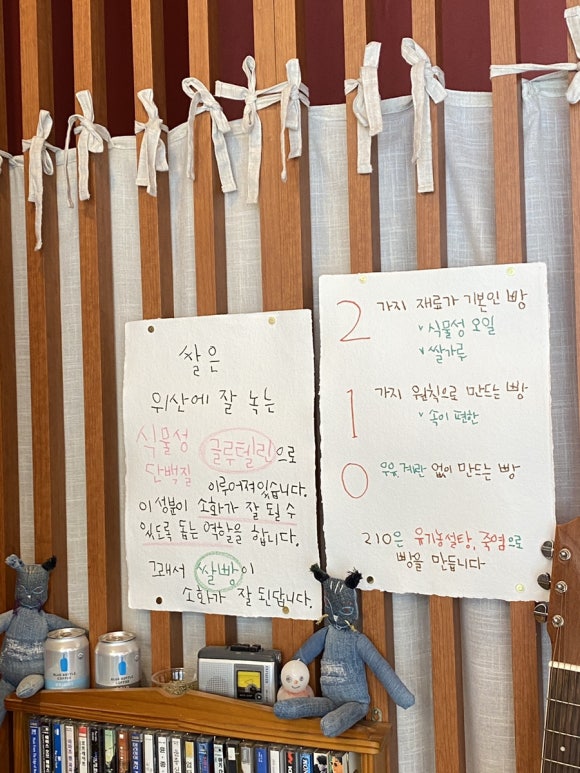 쌀은
위산에 잘 녹는
식물성 글루텔린으로
단백질
이루어져있습니다.
이 성분이 소화가 잘 될 수
있도록 돕는 역할을 합니다.
그래서 쌀빵이
소화가 잘 된답니다.
2 가지 재료가 기본인 빵
v 식물성 오일
v 쌀가루
1 가지 원칙으로 만드는 빵
v 속이 편한
0 우유, 계란 없이 만드는 빵
210은 유기농설탕, 죽염으로
빵을 만듭니다
BLUE BOTTLE
COFFEE
BLUE BOTTLE
COFFEE